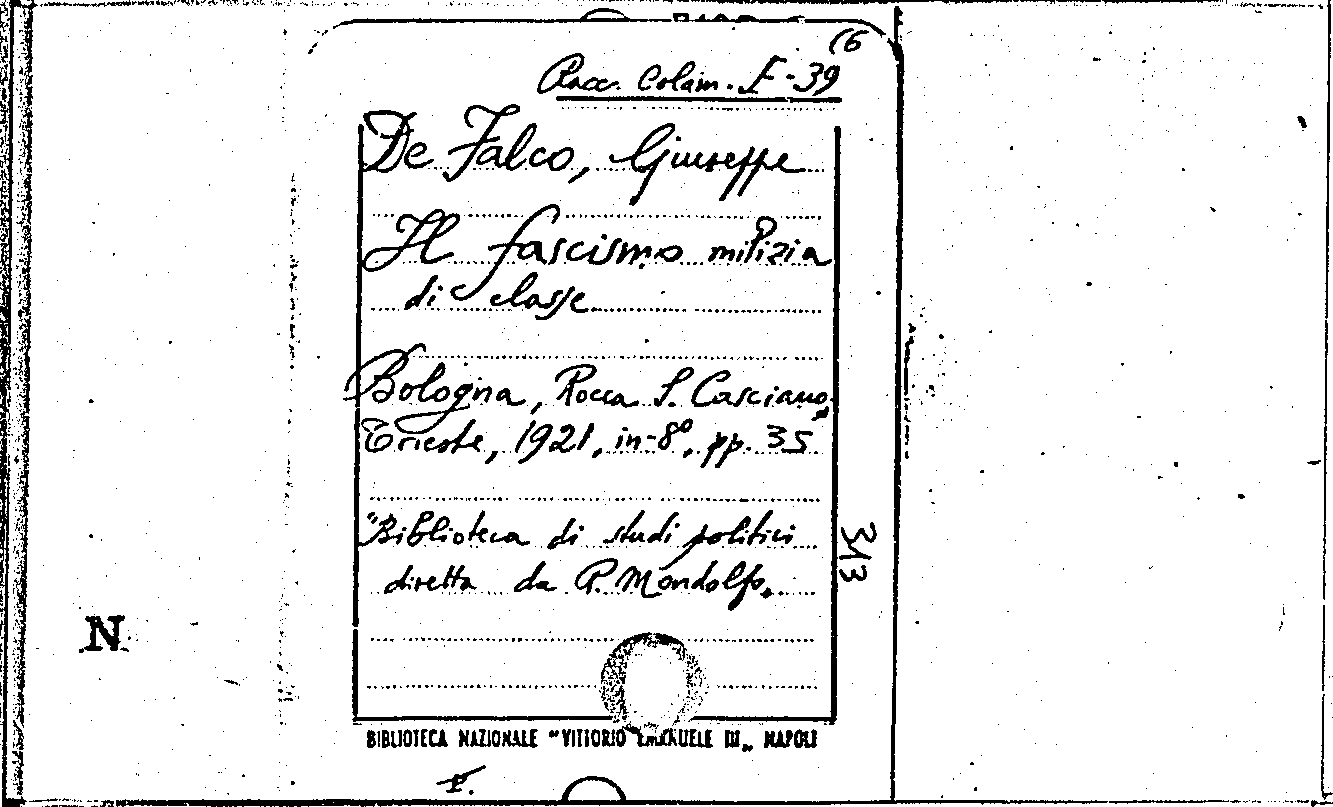 (6
Racc. Colam. E-39
De Falco, Giuseppe
Il fascismo milizia
di classe
Bologna, Rocca S. Casciano,
Trieste, 1921, in-8°, pp. 35
"Biblioteca di studi politici
diretta da R. Mondolfo„
313
N
BIBLIOTECA NAZIONALE "VITTORIO EMANUELE III„ NAPOLI